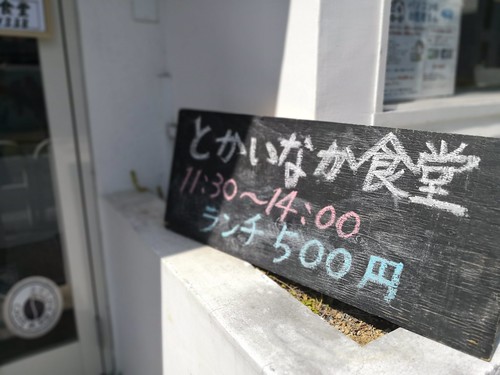 食堂
とかいなか食堂
11:30～14:00
ランチ 500円